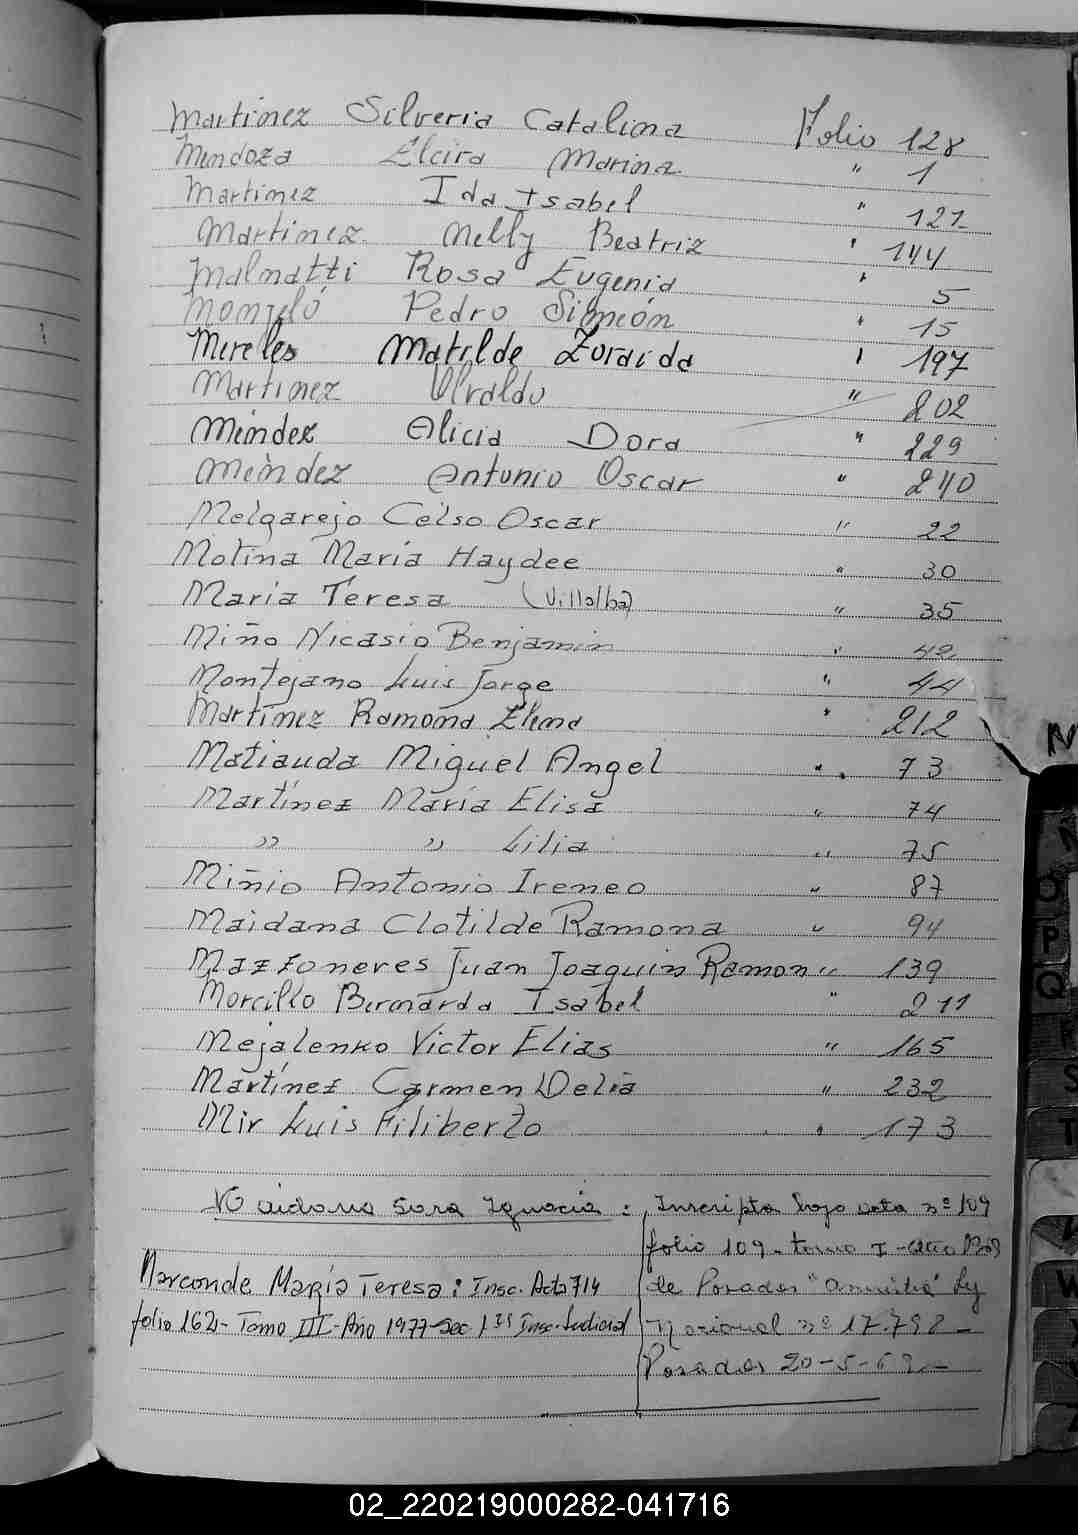 Martinez Silveria Catalina Folio 128
Mendoza Elcira Marina " 1
Martinez Ida Isabel " 121
Martinez Nelly Beatriz " 144
Malmatti Rosa Eugenia " 5
Pedro Simeón " 15
Mereles Matilde Zoraida " 197
Martinez Ubaldo " 202
Méndez Alicia Dora " 229
Méndez Antonio Oscar " 240
Melgarejo Celso Oscar " 22
Molina Maria Haydee " 30
Maria Teresa (Villalba) " 35
Miño Nicasio Benjamin " 42
Montejano Luis Jorge " 44
Martinez Ramona Elena " 212
Matiauda Miguel Angel " 73
Martínez María Elisa " 74
" " Lilia " 75
Miñio Antonio Ireneo " 87
Maidana Clotilde Ramona " 94
Mazzoneres Juan Joaquin Ramon " 139
Morcillo Bernarda Isabel " 211
Mejalenko Victor Elias " 165
Martínez Carmen Delia " 232
Mir Luis Filiberto " 173
Maidana Sara Ignacia : Inscripta bajo acta nº 109
folio 109 - tomo I - año
de Posadas "Amnistía" Ley
Nacional nº 17.792 -
Posadas 20-5-69 -
Marconde María Teresa : Insc. Acta 714
folio 162 - Tomo III - Año 1977 - Sec 1ª Insc. Judicial
N
O
P
Q
S
T
W
02_220219000282-041716